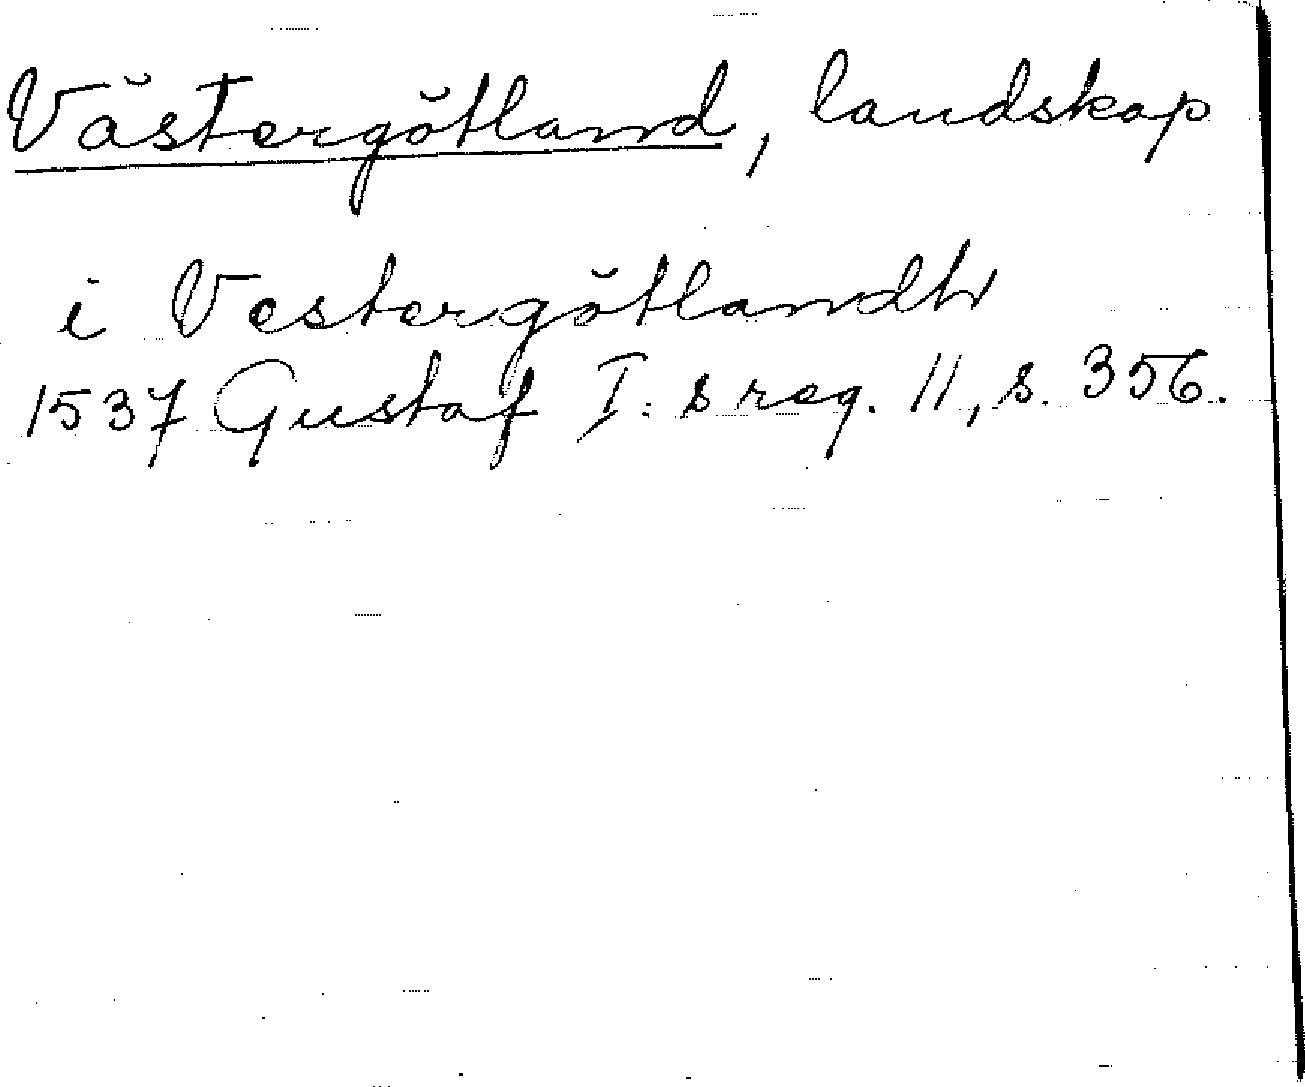 Västergötland, landskap
i Vestergötlandh
1537 Gustaf I:s reg. 11, s. 356.